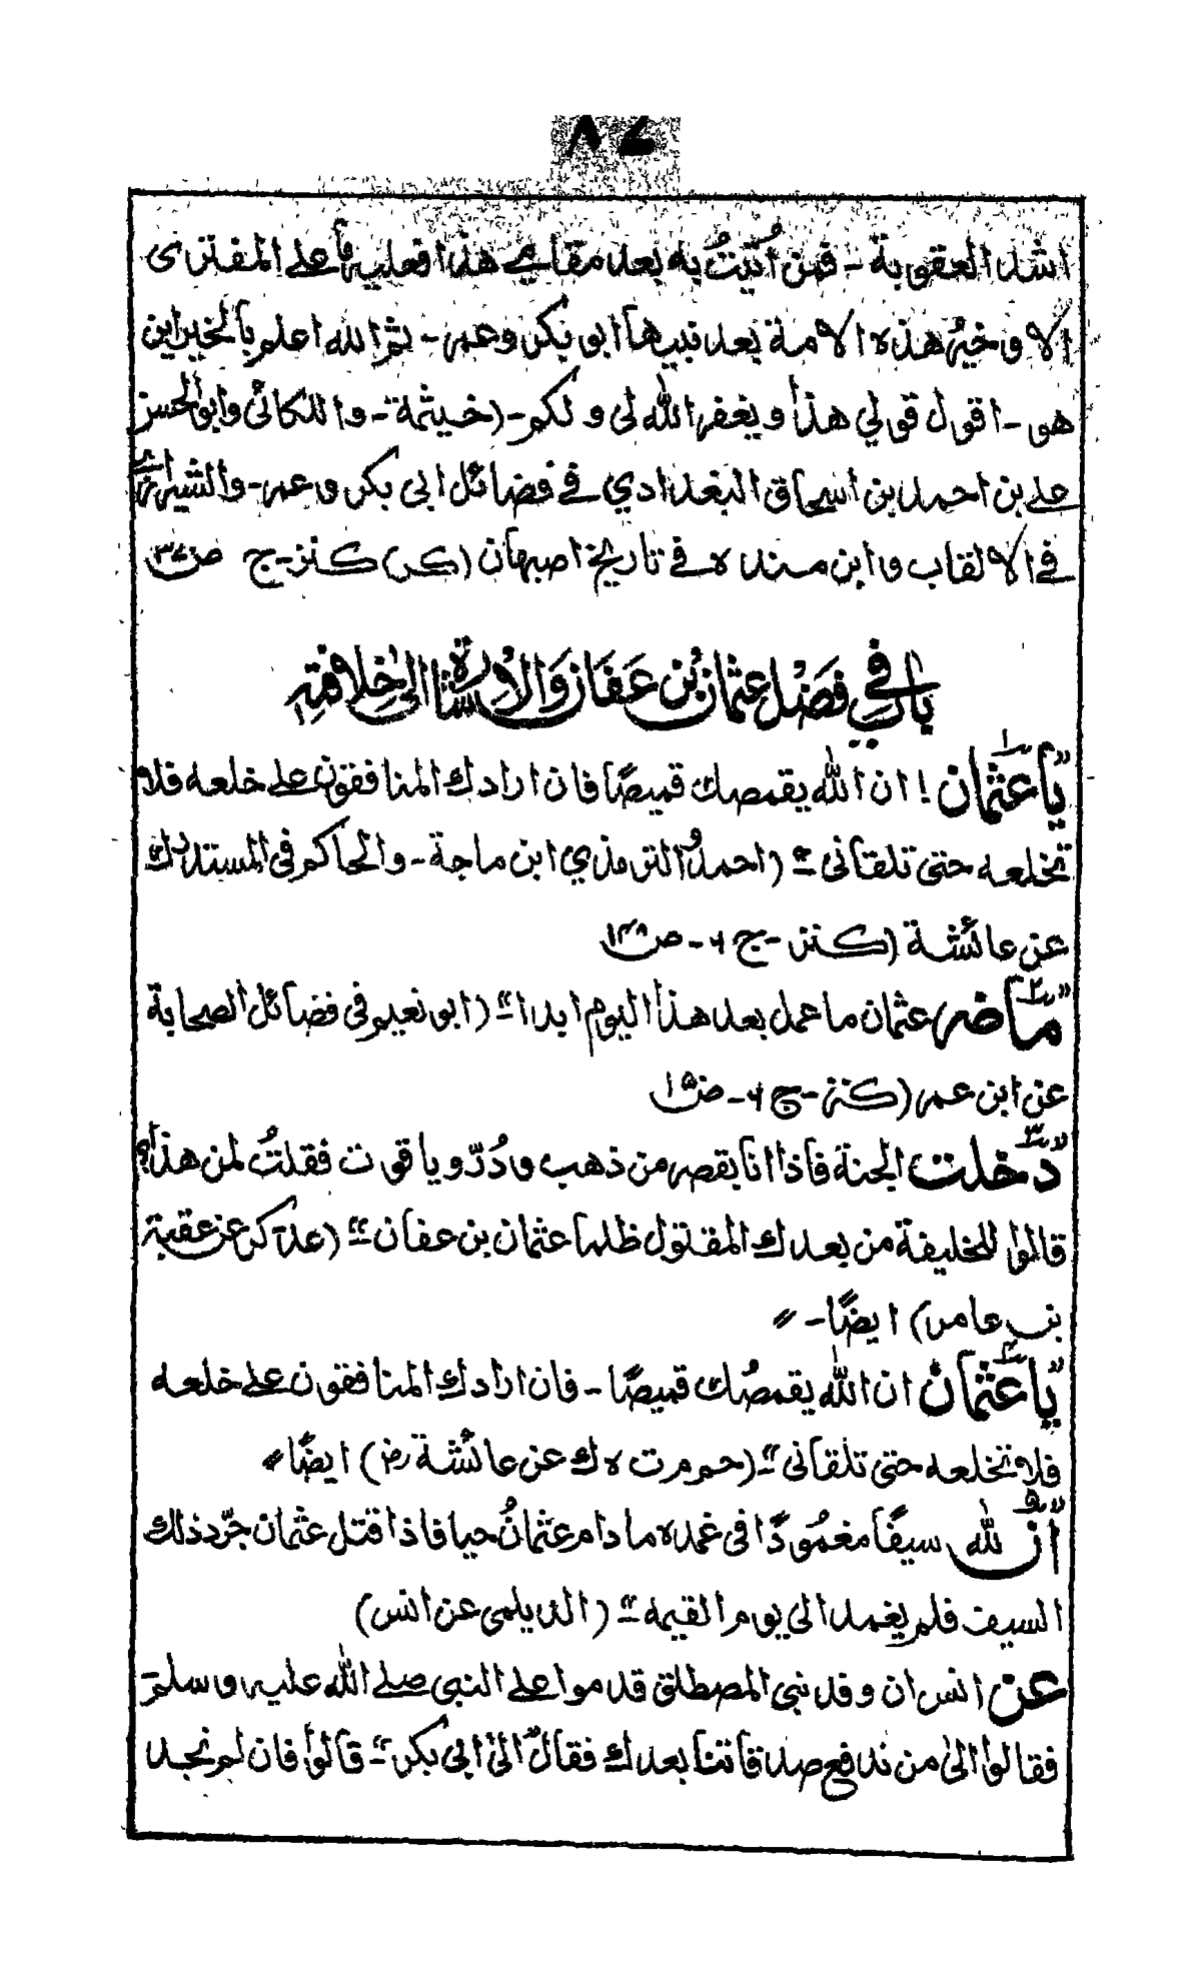 اشد العقوبة - فمن أُتيتُ به بعد مقامي هذا فعليه ما على المفترى
الا و خيرُ هذه الامة بعد نبيها ابو بكر و عمر - ثم الله اعلم بالخير اين
هو - اقول قولي هذا و يغفر الله لى و لكم - (خيثمة - و اللالكائى و ابو الحسن
على بن احمد بن اسحاق البغدادي في فضائل ابى بكر و عمر - و الشيرازى
في الالقاب و ابن منده في تاريخ اصبهان (كر) كنز - ج ص
باب في فَضْل عثمان بُن عَفَان وَالاِشارة الىٰ خِلافتِهِ
"يا عثمان! ان الله يقمصك قميصًا فان ارادك المنافقون على خلعه فلا
تخلعه حتى تلقانى" (احمد و الترمذي ابن ماجة - و الحاكم فى المستدرك
عن عائشة (كنز - ج ۶ - ص۱۴۸
"ما ضر عثمان ما عمل بعد هذا اليوم ابدا" (ابو نعيم فى فضائل الصحابة
عن ابن عمر (كنز - ج ۶ - ص
"دخلت الجنة فاذا انا بقصر من ذهب و دُرّ و ياقوت فقلتُ لمن هذا؟
قالوا للخليفة من بعدك المقتول ظلما عثمان بن عفان" (عد كر عن عقبة
بن عامر) ايضًا - "
"يا عثمان ان الله يقمصُك قميصًا - فان ارادك المنافقون على خلعه
فلا تخلعه حتى تلقانى" (حم م ت ه ك عن عائشة رض) ايضًا "
"انّ لله سيفًا مغمُودًا فى غمده ما دام عثمانُ حيا فاذا قتل عثمان جرّد ذلك
السيف فلم يغمد الى يوم القيمة" (الديلمى عن انس)
عن انس ان وفد نبى المصطلق قدموا على النبى صلى الله عليه و سلم
فقالوا الىٰ من ندفع صدقاتنا بعدك فقال الىٰ ابى بكر" قالوا فان لم نجد